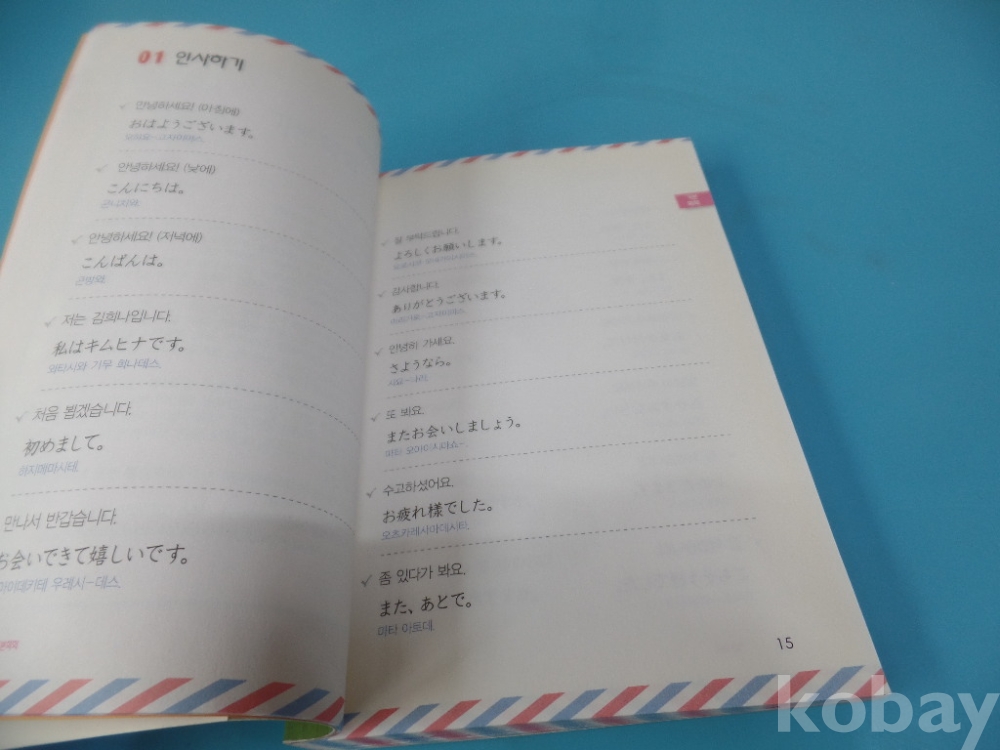 01 인사하기
안녕하세요! (아침에)
おはようございます。
오하요-고자이마스.
안녕하세요! (낮에)
こんにちは。
곤니치와.
안녕하세요! (저녁에)
こんばんは。
곤방와.
저는 김희나입니다.
私はキムヒナです。
와타시와 기무 희나데스.
처음 뵙겠습니다.
初めまして。
하지메마시테.
만나서 반갑습니다.
お会いできて嬉しいです。
아이데키테 우레시-데스.
잘 부탁드립니다.
よろしくお願いします。
감사합니다.
ありがとうございます。
안녕히 가세요.
さようなら。
사요-나라.
또 봐요.
またお会いしましょう。
마타 오아이시마쇼-.
수고하셨어요.
お疲れ様でした。
오츠카레사마데시타.
좀 있다가 봐요.
また、あとで。
마타 아토데.
15
kobay